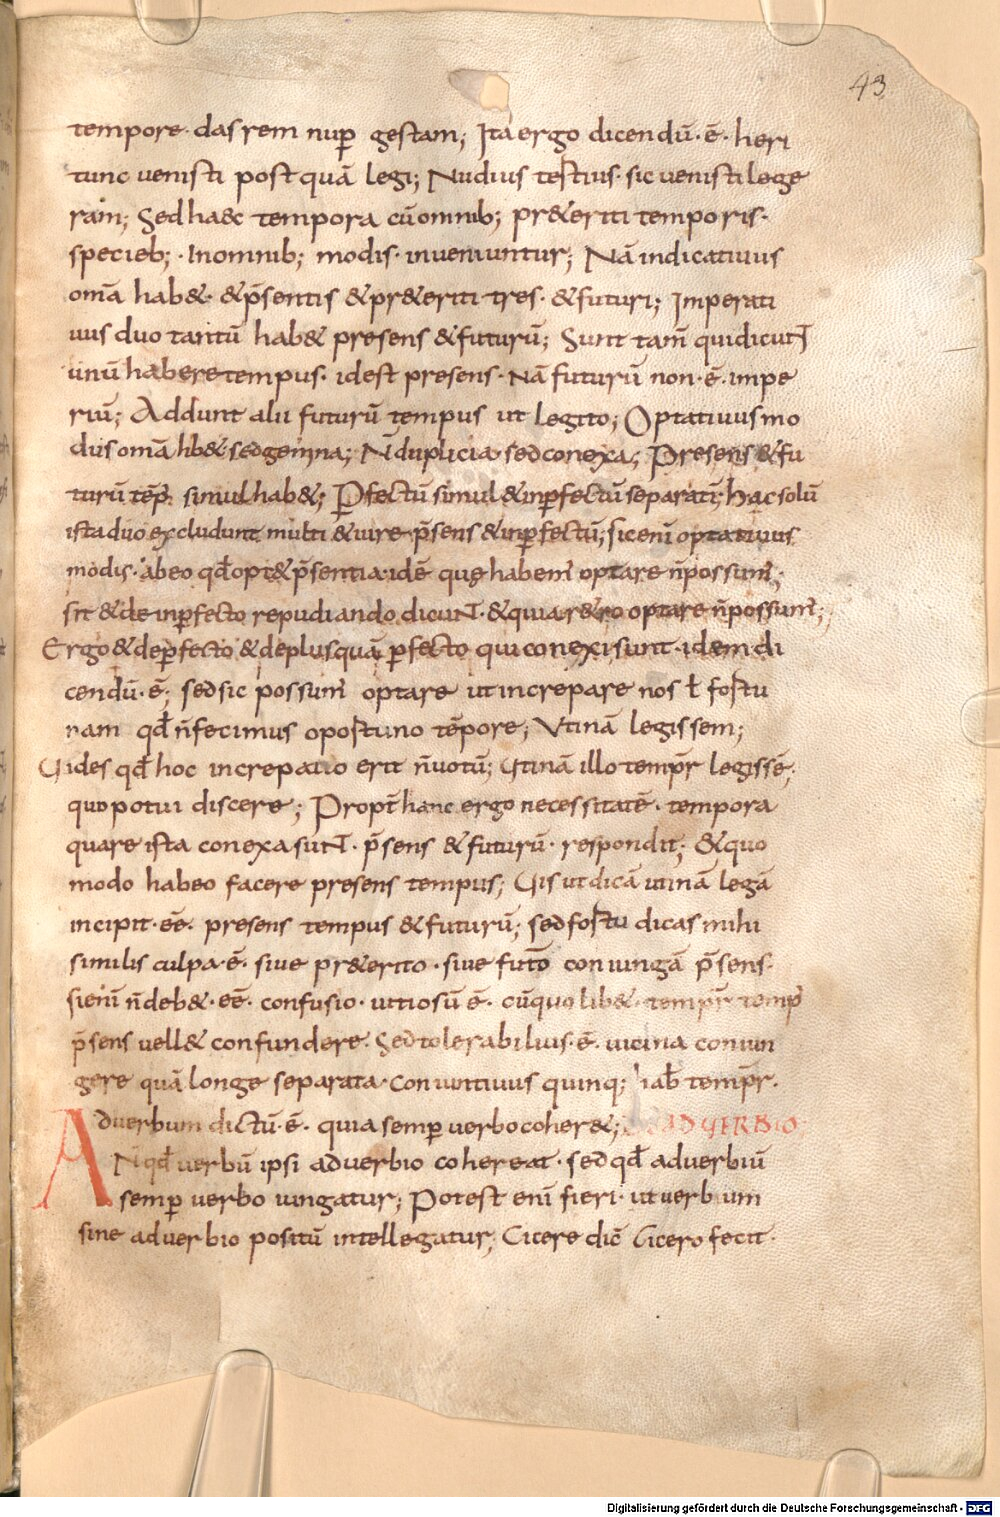 43
tempore · das rem nuꝑ gestam; Ita ergo dicendū · ē · heri
tunc uenisti post quā legi; Nudius testius · sic uenisti lege
ram; Sed haec tempora cū omnib; pr&eriti temporis ·
specieb; · In omnib; modis · inueniuntur; Nā indicatiuus
omā hab& · & p̄sentis & pr&eriti tres · & futuri; Imperati
uus duo tantū hab& presens & futurū; Sunt tam̄ qui dicunt
unū habere tempus · id est presens · Nā futurū non · ē · impe
riū; Addunt alii futurū tempus ut legito; Optatiuus mo
dus omā hb& sed gemina; N̄ duplicia sed conexa; Presens & fu
turū tēp̄ simul hab&; Ꝑfectū simul & inꝑfectū separatī; hac solū
ista duo excludunt multi & iure p̄sens & inꝑfectū; sic enī optatiuus
modis · abeo qđ opt& p̄sentia · idē quę habem̄ optare n̄ possum̄;
sit & de inꝑfecto repudiando dicunt · & quia r&ro optare n̄ possum̄;
Ergo & de ꝑfecto & de plusquā ꝑfecto qui conexi sunt · idem di
cendū · ē; sed sic possum̄ optare ut increpare nos ł fostu
nam qđ n̄ fecimus opostuno tēpore; Vtinā legissem;
Uides qđ hoc increpatio erit n̄ uotū; Utinā illo temp̄r legissē;
quo potui discere; Propt̄ hanc ergo necessitatē · tempora
quare ista conexa sunt · p̄sens & futurū · respondit; & quo
modo habeo facere presens tempus; Uis ut dicā utinā legā
incipit · eē · presens tempus & futurū; sed fostu dicas mihi
similis culpa · ē · siue pr&erito · siue futō coniungā p̄sens ·
si enī n̄ deb& · eē · confusio · uitiosū ē · cū quolib& · temp̄r temp̄
p̄sens uell& confundere · Sed tolerabilius · ē · uicina coniun
gere quā longe separata · Coniuntiuus quinq; hab̄ temp̄r ·
Aduerbum dictū · ē · quia semꝑ uerbo coher&; DE ADUERBIO
N̄ qđ uerbū ipsi aduerbio cohereat · sed qđ aduerbiū
semꝑ uerbo iungatur; Potest enī fieri · ut uerbum
sine aduerbio positū intellegatur; Cicere dic̄ Cicero fecit ·
Digitalisierung gefördert durch die Deutsche Forschungsgemeinschaft - DFG